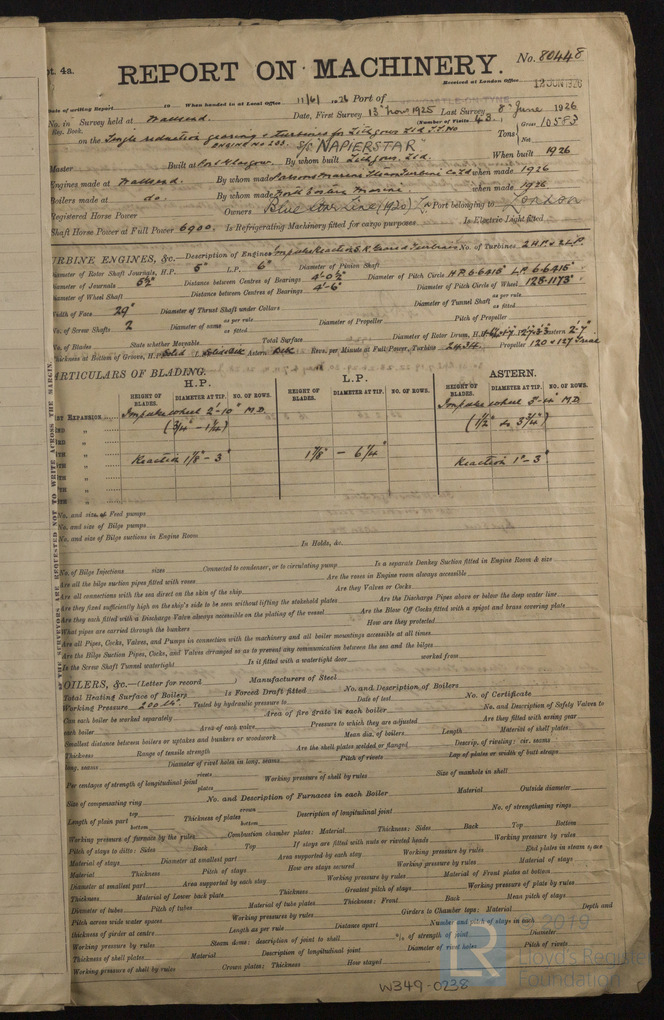 pt. 4a.
No. 80448
REPORT ON MACHINERY.
Received at London Office 12 JUN 1926
Date of writing Report 19 When handed in at Local Office 11/6/1926 Port of
No. in Survey held at Wallsend. Date, First Survey 13th Nov 1925 Last Survey 8th June 1926
Reg. Book. (Number of Visits 43.)
on the Single reduction gearing & turbines for Lithgows Ltd
ENGINE No 233. S/S "NAPIERSTAR"
Tons Gross 10583
Net
Master Built at Port Glasgow. By whom built Lithgows. Ltd. When built 1926
Engines made at Wallsend. By whom made Parsons Marine Steam Turbine Co Ltd when made 1926
Boilers made at do. By whom made North Eastern Marine. when made 1926
Registered Horse Power Owners Blue Star Line (1920) Ld Port belonging to London
Shaft Horse Power at Full Power 6900. Is Refrigerating Machinery fitted for cargo purposes Is Electric Light fitted
TURBINE ENGINES, &c.—Description of Engines Impulse Reaction S.R. Geared Turbines No. of Turbines 2 H.P. & 2 L.P.
Diameter of Rotor Shaft Journals, H.P. 5" L.P. 6" Diameter of Pinion Shaft
Diameter of Journals 5½" Distance between Centres of Bearings 4'-0½" Diameter of Pitch Circle H.P. 6.6415" L.P. 6.6415"
Diameter of Wheel Shaft Distance between Centres of Bearings 4'-6" Diameter of Pitch Circle of Wheel 128.1173"
Width of Face 29" Diameter of Thrust Shaft under Collars Diameter of Tunnel Shaft as per rule as fitted
No. of Screw Shafts 2 Diameter of same as per rule as fitted Diameter of Propeller Pitch of Propeller
No. of Blades State whether Moveable Total Surface Diameter of Rotor Drum, H.P. L.P. Astern 2'-7"
Thickness at Bottom of Groove, H.P. Solid L.P. Solid Astern Revs. per Minute at Full Power, Turbine 2434 Propeller 120 & 127 Trial
PARTICULARS OF BLADING.
H.P. L.P. ASTERN.
HEIGHT OF BLADES. DIAMETER AT TIP. NO. OF ROWS. HEIGHT OF BLADES. DIAMETER AT TIP. NO. OF ROWS. HEIGHT OF BLADES. DIAMETER AT TIP. NO. OF ROWS.
1ST EXPANSION Impulse Wheel 2'-10" M.D. Impulse Wheel M.D.
2ND " (3/4" – 1¼") (1½" to 3¾")
3RD "
4TH " Reaction 1⅛" – 3" 1⅞" – 6¼" Reaction 1"-3"
5TH "
6TH "
7TH "
8TH "
THE SURVEYORS ARE REQUESTED NOT TO WRITE ACROSS THE MARGIN.
No. and size of Feed pumps
No. and size of Bilge pumps
No. and size of Bilge suctions in Engine Room
In Holds, &c.
No. of Bilge Injections sizes Connected to condenser, or to circulating pump Is a separate Donkey Suction fitted in Engine Room & size
Are all the bilge suction pipes fitted with roses Are the roses in Engine room always accessible
Are all connections with the sea direct on the skin of the ship Are they Valves or Cocks
Are they fixed sufficiently high on the ship's side to be seen without lifting the stokehold plates Are the Discharge Pipes above or below the deep water line
Are they each fitted with a Discharge Valve always accessible on the plating of the vessel Are the Blow Off Cocks fitted with a spigot and brass covering plate
What pipes are carried through the bunkers How are they protected
Are all Pipes, Cocks, Valves, and Pumps in connection with the machinery and all boiler mountings accessible at all times
Are the Bilge Suction Pipes, Cocks, and Valves arranged so as to prevent any communication between the sea and the bilges
Is the Screw Shaft Tunnel watertight Is it fitted with a watertight door worked from
BOILERS, &c.—(Letter for record ) Manufacturers of Steel
Total Heating Surface of Boilers Is Forced Draft fitted No. and Description of Boilers
Working Pressure 200 lb. Tested by hydraulic pressure to Date of test No. of Certificate
Can each boiler be worked separately Area of fire grate in each boiler No. and Description of Safety Valves to
each boiler Area of each valve Pressure to which they are adjusted Are they fitted with easing gear
Smallest distance between boilers or uptakes and bunkers or woodwork Mean dia. of boilers Length Material of shell plates
Thickness Range of tensile strength Are the shell plates welded or flanged Descrip. of riveting: cir. seams
long. seams Diameter of rivet holes in long. seams Pitch of rivets Lap of plates or width of butt straps
Per centages of strength of longitudinal joint rivets plates Working pressure of shell by rules Size of manhole in shell
Size of compensating ring No. and Description of Furnaces in each Boiler Material Outside diameter
Length of plain part top bottom Thickness of plates crown bottom Description of longitudinal joint No. of strengthening rings
Working pressure of furnace by the rules Combustion chamber plates: Material Thickness: Sides Back Top Bottom
Pitch of stays to ditto: Sides Back Top If stays are fitted with nuts or riveted heads Working pressure by rules
Material of stays Diameter at smallest part Area supported by each stay Working pressure by rules End plates in steam space
Material Thickness Pitch of stays How are stays secured Working pressure by rules Material of stays
Diameter at smallest part Area supported by each stay Working pressure by rules Material of Front plates at bottom
Thickness Material of Lower back plate Thickness Greatest pitch of stays Working pressure of plate by rules
Diameter of tubes Pitch of tubes Material of tube plates Thickness: Front Back Mean pitch of stays
Pitch across wide water spaces Working pressures by rules Girders to Chamber tops: Material Depth and
thickness of girder at centre Length as per rule Distance apart Number and pitch of stays in each
Working pressure by rules Steam dome: description of joint to shell % of strength of joint Diameter
Thickness of shell plates Material Description of longitudinal joint Diameter of rivet holes Pitch of rivets
Working pressure of shell by rules Crown plates: Thickness How stayed
2019
LR Lloyd's Register Foundation
W349-0238